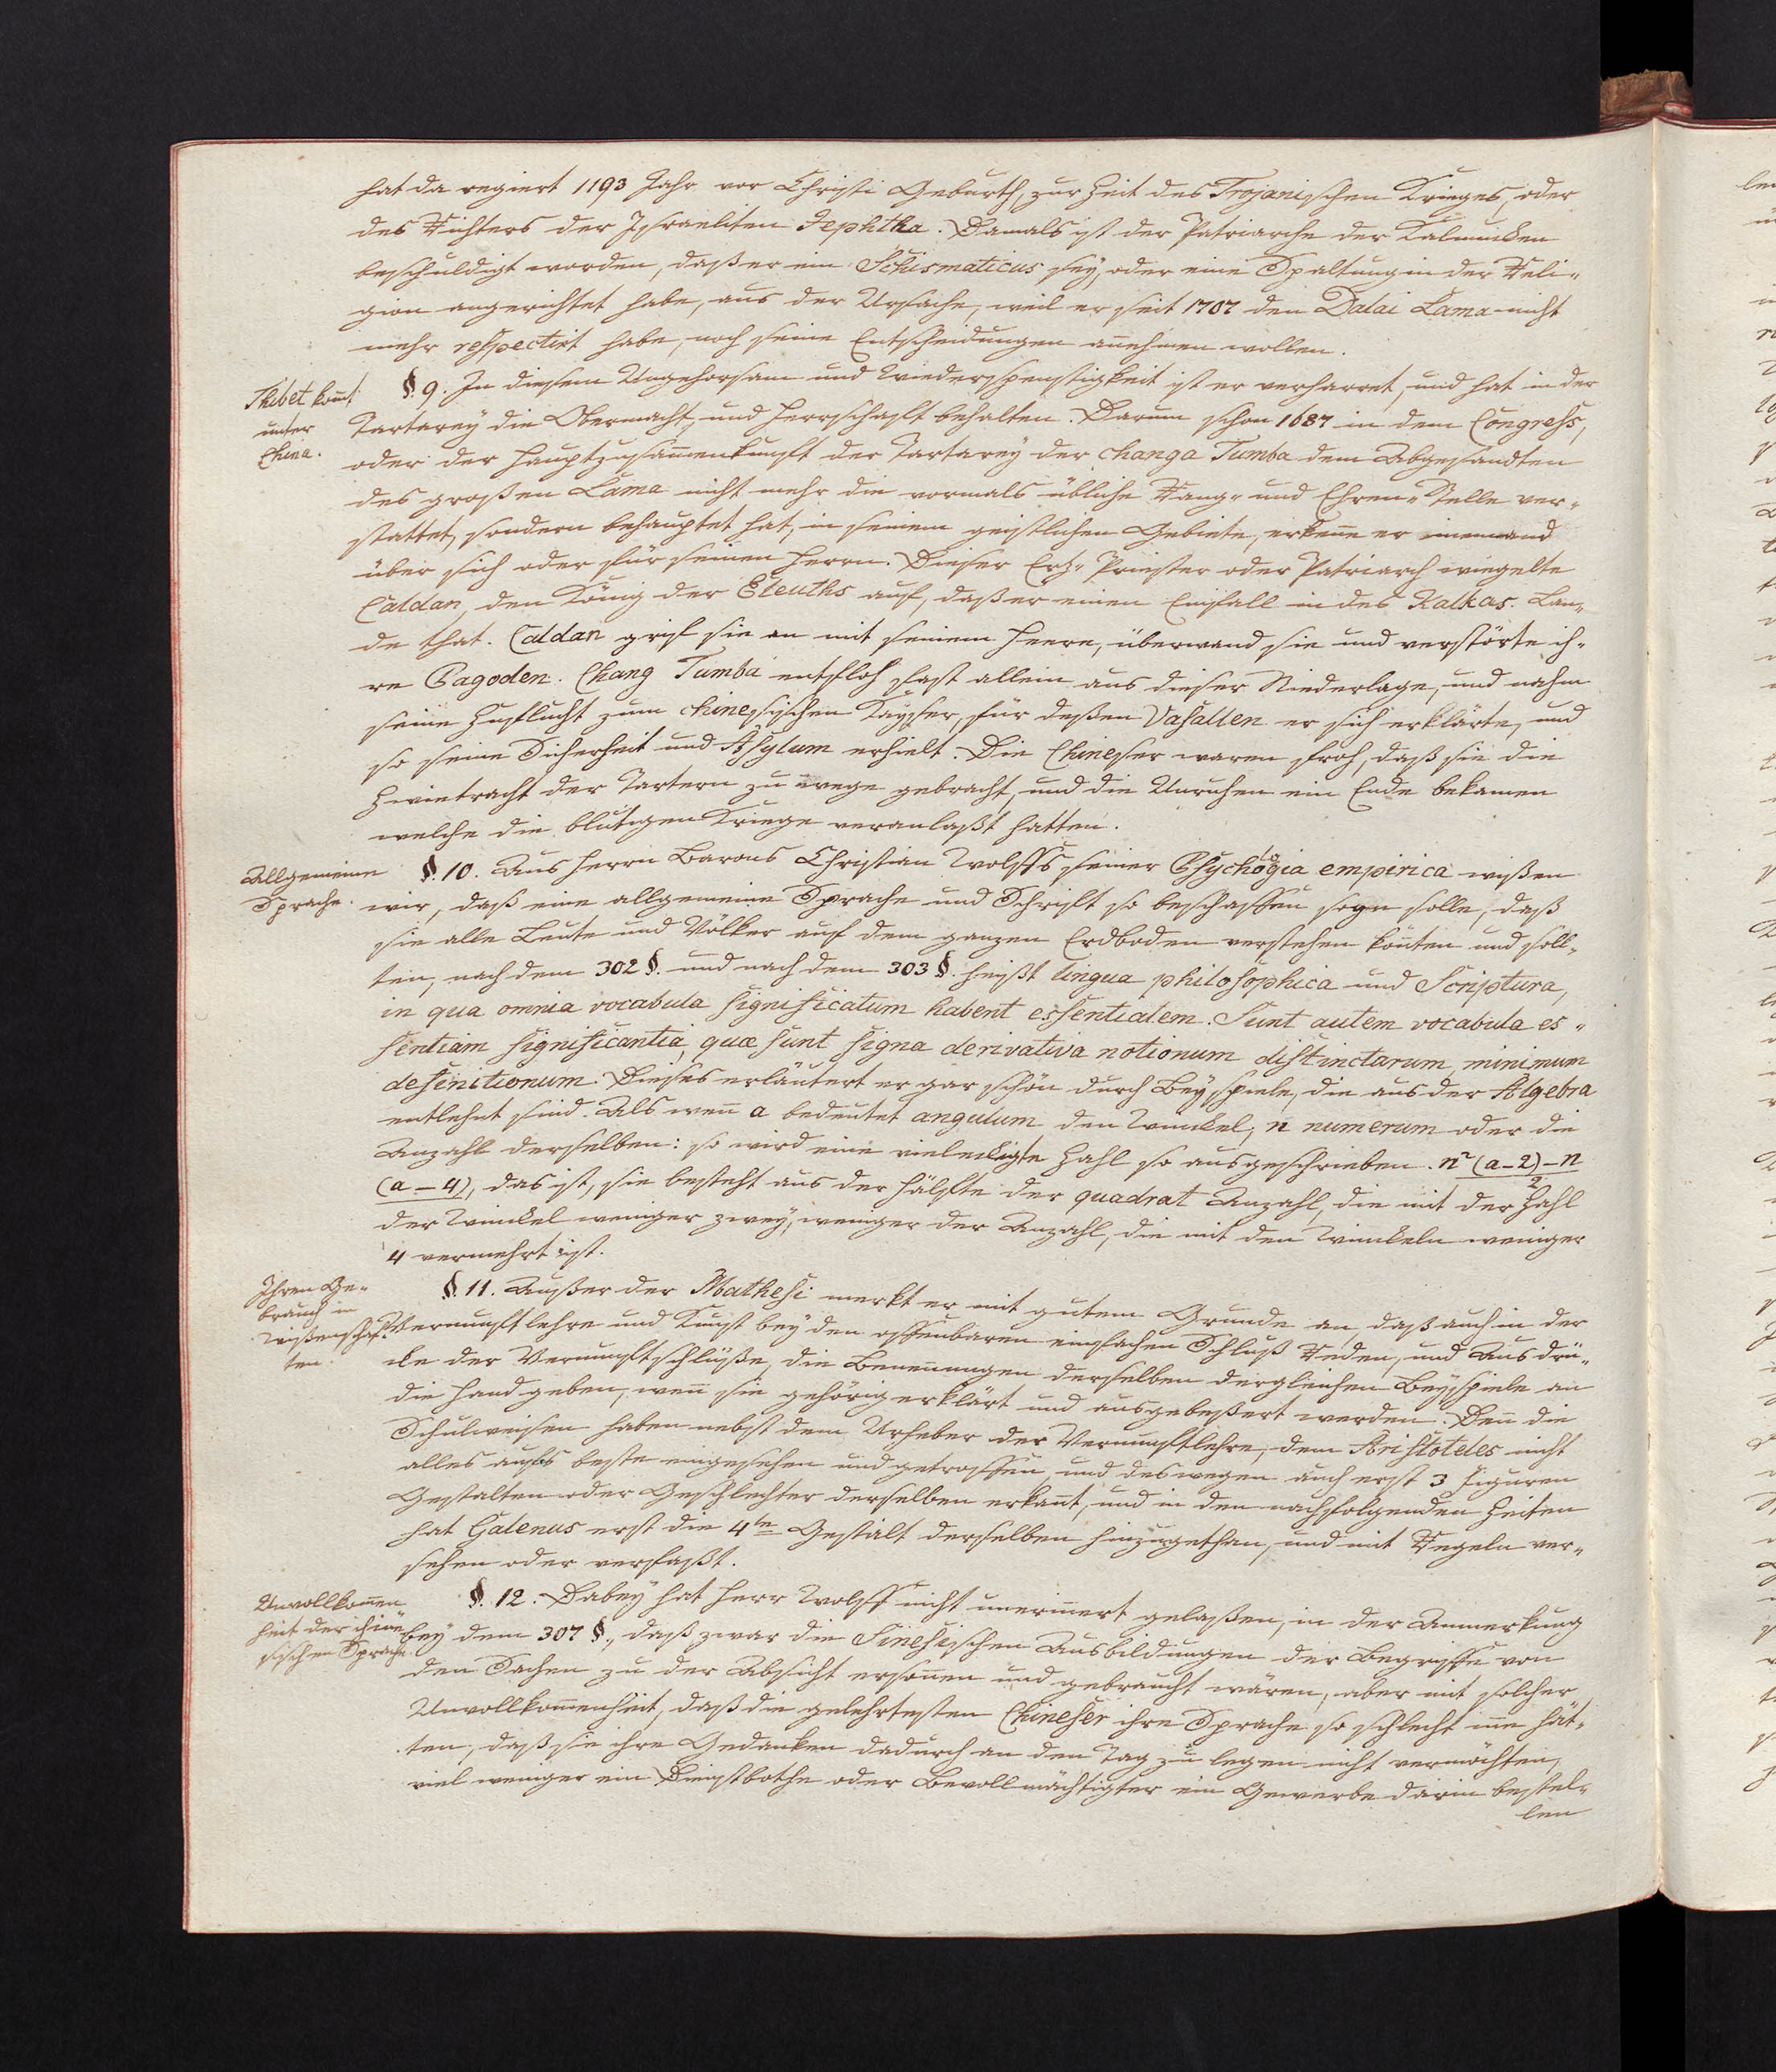 hat da regiert 1193 Jahr vor Christi Geburth, zur Zeit des Trojanischen Krieges, oder
des Richters der Israeliten Jephtha. Damals ist der Patriarche der Kalmucken
beschuldigt worden, daß er ein Schismaticus sey, oder eine Spaltung in der Reli-
gion angerichtet habe, aus der Ursache, weil er seit 1707 den Dalai Lama nicht
mehr respectirt habe, noch seine Entscheidungen añehmen wollen.
Thibet kom̄t
unter
China.
§. 9. In diesem Ungehorsam und Wiederspenstigkeit ist er verharret, und hat in der
Tartarey die Obermacht, und Herrschaft behalten. Darum schon 1687 in dem Congress,
oder der Hauptzusam̄enkunft der Tartarey der Changa Tumba dem Abgesandten
des großen Lama nicht mehr die vormals übliche Rang- und Ehren-Stelle ver-
stattet, sondern behauptet hat, in seinem geistlichen Gebiete, erkeñe er niemand
über sich oder für seinen Herrn. Dieser Erz-Priester oder Patriarch wiegelte
Caldan, den König der Eleuths auf, daß er einen Einfall in des Kalkas. Lan-
de that. Caldan grif sie an mit seinem Heere, überwand sie und verstörte ih-
re Pagoden. Chang Tumba entfloh fast allein aus dieser Niederlage, und nahm
seine Zuflucht zum chinesischen Kayser, für deßen Vasallen er sich erklärte, und
so seine Sicherheit und Asylum erhielt. Die Chineser waren froh, daß sie die
Zwietracht der Tartern zu wege gebracht, und die Unruhen ein Ende bekamen
welche die blutigen Kriege veranlaßt hatten.
Allgemeine
Sprache.
§. 10. Aus Herrn Barons Christian Wolffs seiner Psychologia empirica wißen
wir, daß eine allgemeine Sprache und Schrift so beschaffen seyn solle, daß
sie alle Leute und Völker auf dem ganzen Erdboden verstehen köñten und soll-
ten, nach dem 302 §. und nach dem 303 §. heißt lingua philosophica und Scriptura,
in qua omnia vocabula significatum habent essentialem. Sunt autem vocabula es-
sentiam significantia, quæ sunt signa derivativa notionum distinctarum, minimum
definitionum. Dieses erläutert er gar schön durch Beyspiele, die aus der Algebra
entlehnt sind. Als weñ a bedeutet angulum den Winckel; n numerum oder die
Anzahl derselben: so wird eine vieleckigte Zahl so ausgeschrieben. n² (a-2)-n
(a-4), das ist, sie besteht aus der Hälfte der quadrat Anzahl, die mit der Zahl
2
der Winckel weniger zwey, weniger der Anzahl, die mit den Winckeln weniger
4 vermehrt ist.
Ihren Ge-
brauch in
Wißenschaf-
ten.
§. 11. Außer der Mathesi merkt er mit gutem Grunde an, daß auch in der
Vernunftlehre und Kunst bey den offenbaren einfachen Schluß Reden, und Ausdrü-
cke der Vernunftschlüße, die Beneñungen derselben dergleichen Beyspiele an
die Hand geben, weñ sie gehörig erklärt und ausgebeßert werden. Deñ die
Schulweisen haben nebst dem Urheber der Vernunftlehre, dem Aristoteles nicht
alles aufs beste eingesehen und getroffen, und deswegen auch erst 3 Figuren
Gestalten oder Geschlechter derselben erkañt, und in den nachfolgenden Zeiten
hat Galenus erst die 4te Gestalt derselben hinzugethan, und mit Regeln ver-
sehen oder verfaßt.
Unvollkom̄en
heit der chine
sischen Sprache.
§. 12. Dabey hat Herr Wolff nicht unerinnert gelaßen, in der Anmerkung
bey dem 307 §., daß zwar die Sinesischen Ausbildungen der Begriffe von
den Sachen zu der Absicht ersoñen und gebraucht wären, aber mit solcher
Unvollkom̄enheit, daß die gelehrtesten Chineser ihre Sprache so schlecht iñe hät-
ten, daß sie ihre Gedanken dadurch an den Tag zu legen nicht vermöchten,
viel weniger ein Dienstbothe oder Bevollmächtigter ein Gewerbe darin bestel-
len